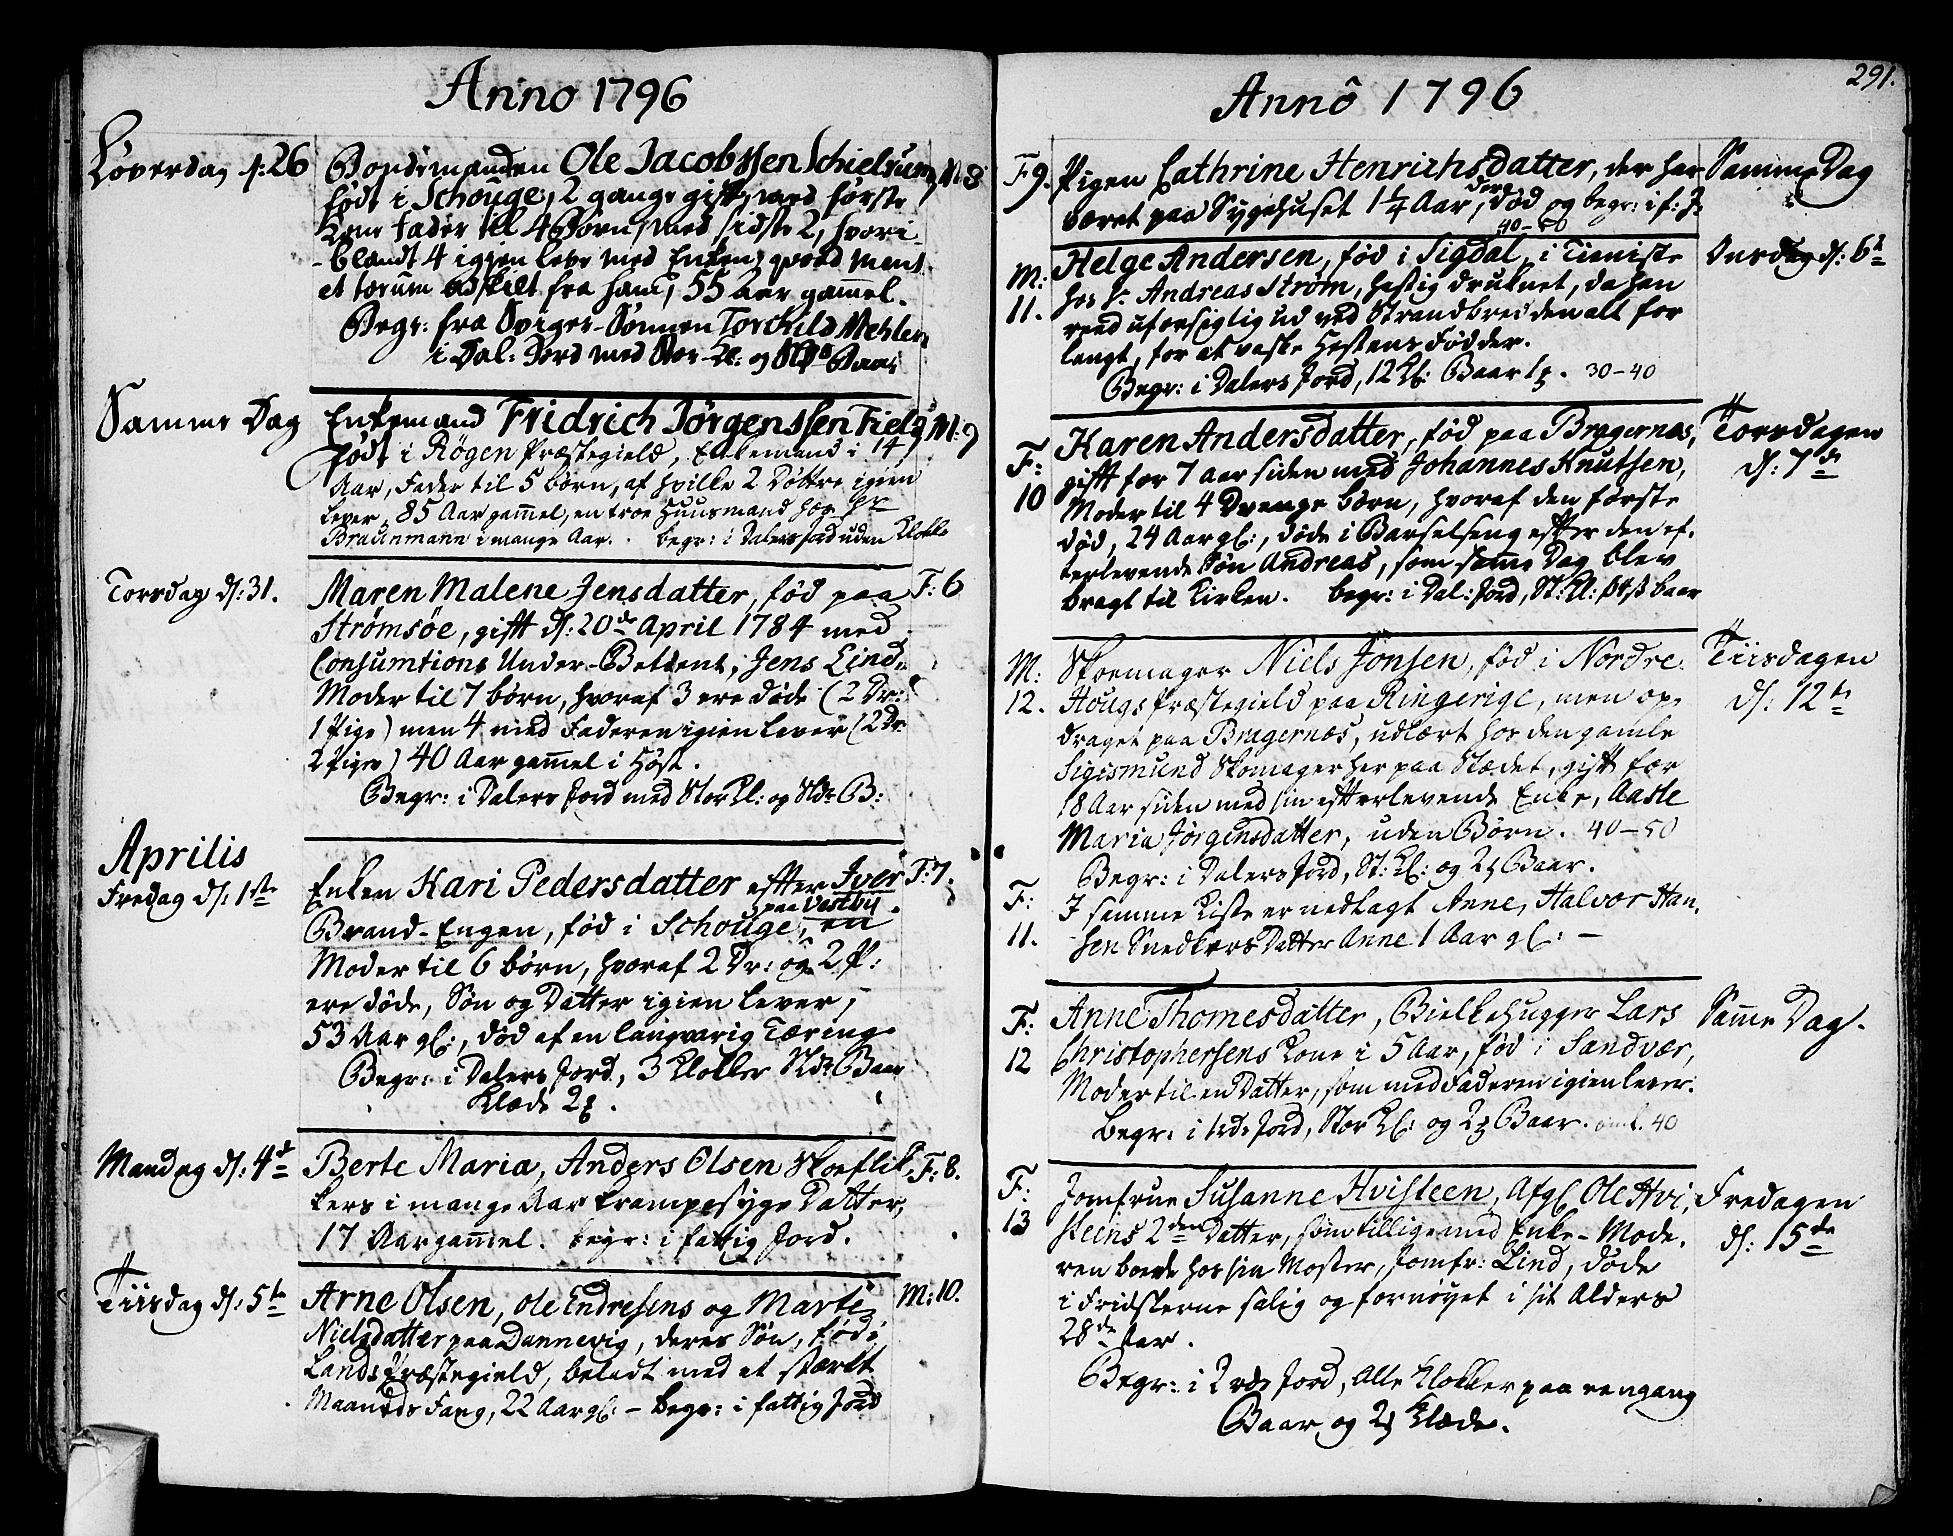 Anno 1796
Løverdag d: 26
Bondemanden Ole Jacobssen Schielrum, M: 8
født i Schouge, 2 gange gift, med første
Kone Fader til 4 Børn, med sidste 2, hvori-
-blandt 4 igien leve med Enken, qvoad mens
et torum adskilt fra ham, 55 Aar gam̄el.
Begr: fra Spiger-Sønnen Torckild Mehlen
i Dal: Jord med Stor-Kl: og Baar
Samme Dag
Enkemand Fridrich Jörgenssen Field, M: 9
født i Røgen Præstegield, Enkemand i 14
Aar, Fader til 5 børn, af hvilke 2 Døttre igien
lever, 85 Aar gam̄el, en troe Huusmand hos Hr
Braunmann i mange Aar. begr: i Dalers Jord uden Klokke
Torsdag d: 31.
Maren Malene Jensdatter, fød paa F: 6
Strømsøe, gift d: 20de April 1784 med
Consumtions Under-Betient, Jens Lind,
Moder til 7 børn, hvoraf 3 ere døde (2 Dr:
1 Pige) men 4 med Faderen igien lever (2 Dr:
2 Piger) 40 Aar gam̄el i Høst.
Begr: i Dalers Jord med Stor Kl: og Sldr B:
Aprilis
Fredag d: 1ste
Enken Kari Pedersdatter efter Iver F: 7.
paa Vestbÿ
Brand-Engen, fød i Schouge, en
Moder til 6 børn, hvoraf 2 Dr: og 2 P:
ere døde, Søn og Datter igien lever,
53 Aar gl:, død af en langvarig Tæring
Begr: i Dalers Jord, 3 Klokker Sldr Baar
Klæde 2
Mandag d: 4de
Berte Maria, Anders Olsen Skoeflik- F: 8.
kers i mange Aar krampesyge Datter,
17 Aar gam̄el. begr: i fattig Jord.
Tiisdag d: 5te
Arne Olsen, Ole Endresens og Marte M: 10.
Nielsdatter paa Dannevig, deres Søn, fød i
Lands Præstegield, beladt med et stærkt
Maaneds Fang, 22 Aar gl: – begr: i fattig Jord
Annô 1796
291.
F 9. Pigen Cathrine Henrichsdatter, der har Samme Dag
været paa Sygehuset 1 1/4 Aar, der død og begr: i f: J:
40–50
M: 11. Helge Andersen, fød i Sigdal, i Tieniste Onsdag d: 6te
hos Hr. Andreas Strøm, hastig druknet, da han
reed uforsigtig ud ved Strandbredden alt for
langt, for at vaske Hestens Fødder.
Begr: i Dalers Jord, 12 Kl: Baar 1. 30–40
F: 10 Karen Andersdatter, fød paa Bragernæs, Torsdagen
gift for 7 aar siden med Johannes Knutsen, d: 7de
Moder til 4 Drenge børn, hvoraf den første
død, 24 Aar gl:, døde i Barselseng efter den ef-
terlevende Søn Andreas, som samme Dag blev
bragt til Kirken. begr: i Dal: Jord, St: Kl: baar
M: 12. Skoemager Niels Jönsen, fød i Nordre Tiisdagen
Hougs Præstegield paa Ringerige, men op- d: 12te
draget paa Bragernæs, udlært hos den gamle
Sigismund Skomager her paa Stædet, gift for
18 Aar siden med sin efterlevende Enke, Aasle
Maria Jörgensdatter, uden Børn. 40–50
Begr: i Dalers Jord, St: Kl: og 2 Baar.
F: 11. I samme Kiste er nedlagt Anne, Halvor Han-
sen Snedkers Datter Anne 1 Aar gl: –
F: 12 Anne Thomesdatter, Bielkehugger Lars Sam̄e Dag.
Christophersens Kone i 5 Aar, fød i Sandvær,
Moder til en Datter, som med Faderen igien lever.
Begr: i Jord, Stor Kl: og 2 Baar. oml. 40
F: 13 Jomfrue Susanne Hvisteen, Afgl. Ole Hvi- Fredagen
steens 2den Datter, som tillige med Enke-Mode- d: 15de
ren boede hos sin Moster, Jomfr: Lind, døde
i Fridskerne salig og fornøyet i sit Alders
28de Aar.
Begr: i Jord, Alle Klokker paa een gang
Baar og 2 Klæde.